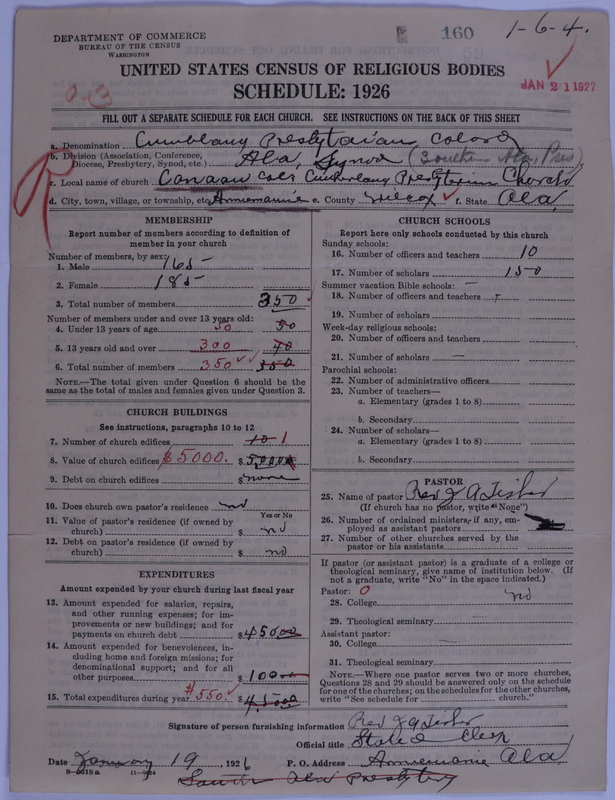 DEPARTMENT OF COMMERCE
BUREAU OF THE CENSUS
WASHINGTON
160
1-6-4.
UNITED STATES CENSUS OF RELIGIOUS BODIES
SCHEDULE: 1926
JAN 21 1927
FILL OUT A SEPARATE SCHEDULE FOR EACH CHURCH. SEE INSTRUCTIONS ON THE BACK OF THIS SHEET
a. Denomination Cumblang Presbytaian Colord
b. Division (Association, Conference, Diocese, Presbytery, Synod, etc.) Ala, Synod (Southern Ala, Pres)
c. Local name of church Canaan Cumberlang Presbyterian Church
d. City, town, village, or township, etc. Annemanie e. County Wilcox f. State Ala,
MEMBERSHIP
Report number of members according to definition of member in your church
Number of members, by sex:
1. Male 165
2. Female 185
3. Total number of members 350
Number of members under and over 13 years old:
4. Under 13 years of age 50 50
5. 13 years old and over 300 40
6. Total number of members 350 350
NOTE.—The total given under Question 6 should be the same as the total of males and females given under Question 3.
CHURCH BUILDINGS
See instructions, paragraphs 10 to 12
7. Number of church edifices 10 1
8. Value of church edifices $5000. $5,000
9. Debt on church edifices $ none
10. Does church own pastor's residence no
Yes or No
11. Value of pastor's residence (if owned by church) $ no
12. Debt on pastor's residence (if owned by church) $ no
EXPENDITURES
Amount expended by your church during last fiscal year
13. Amount expended for salaries, repairs, and other running expenses; for improvements or new buildings; and for payments on church debt $ 45000
14. Amount expended for benevolences, including home and foreign missions; for denominational support; and for all other purposes 10000
15. Total expenditures during year $550. $
CHURCH SCHOOLS
Report here only schools conducted by this church
Sunday schools:
16. Number of officers and teachers 10
17. Number of scholars 150
Summer vacation Bible schools: —
18. Number of officers and teachers
19. Number of scholars
Week-day religious schools:
20. Number of officers and teachers
21. Number of scholars —
Parochial schools:
22. Number of administrative officers
23. Number of teachers—
a. Elementary (grades 1 to 8)
b. Secondary
24. Number of scholars—
a. Elementary (grades 1 to 8)
b. Secondary
PASTOR
25. Name of pastor Rev J A Fisher
(If church has no pastor, write "None")
26. Number of ordained ministers, if any, employed as assistant pastors
27. Number of other churches served by the pastor or his assistants
If pastor (or assistant pastor) is a graduate of a college or theological seminary, give name of institution below. (If not a graduate, write "No" in the space indicated.)
Pastor: 0
28. College no
29. Theological seminary
Assistant pastor:
30. College
31. Theological seminary
NOTE.—Where one pastor serves two or more churches, Questions 28 and 29 should be answered only on the schedule for one of the churches; on the schedules for the other churches, write "See schedule for ______ church."
Signature of person furnishing information Rev J A Fisher
Official title State Clerk
Date January 19, 1926 P. O. Address Annemanie Ala
South Ala Presbytery